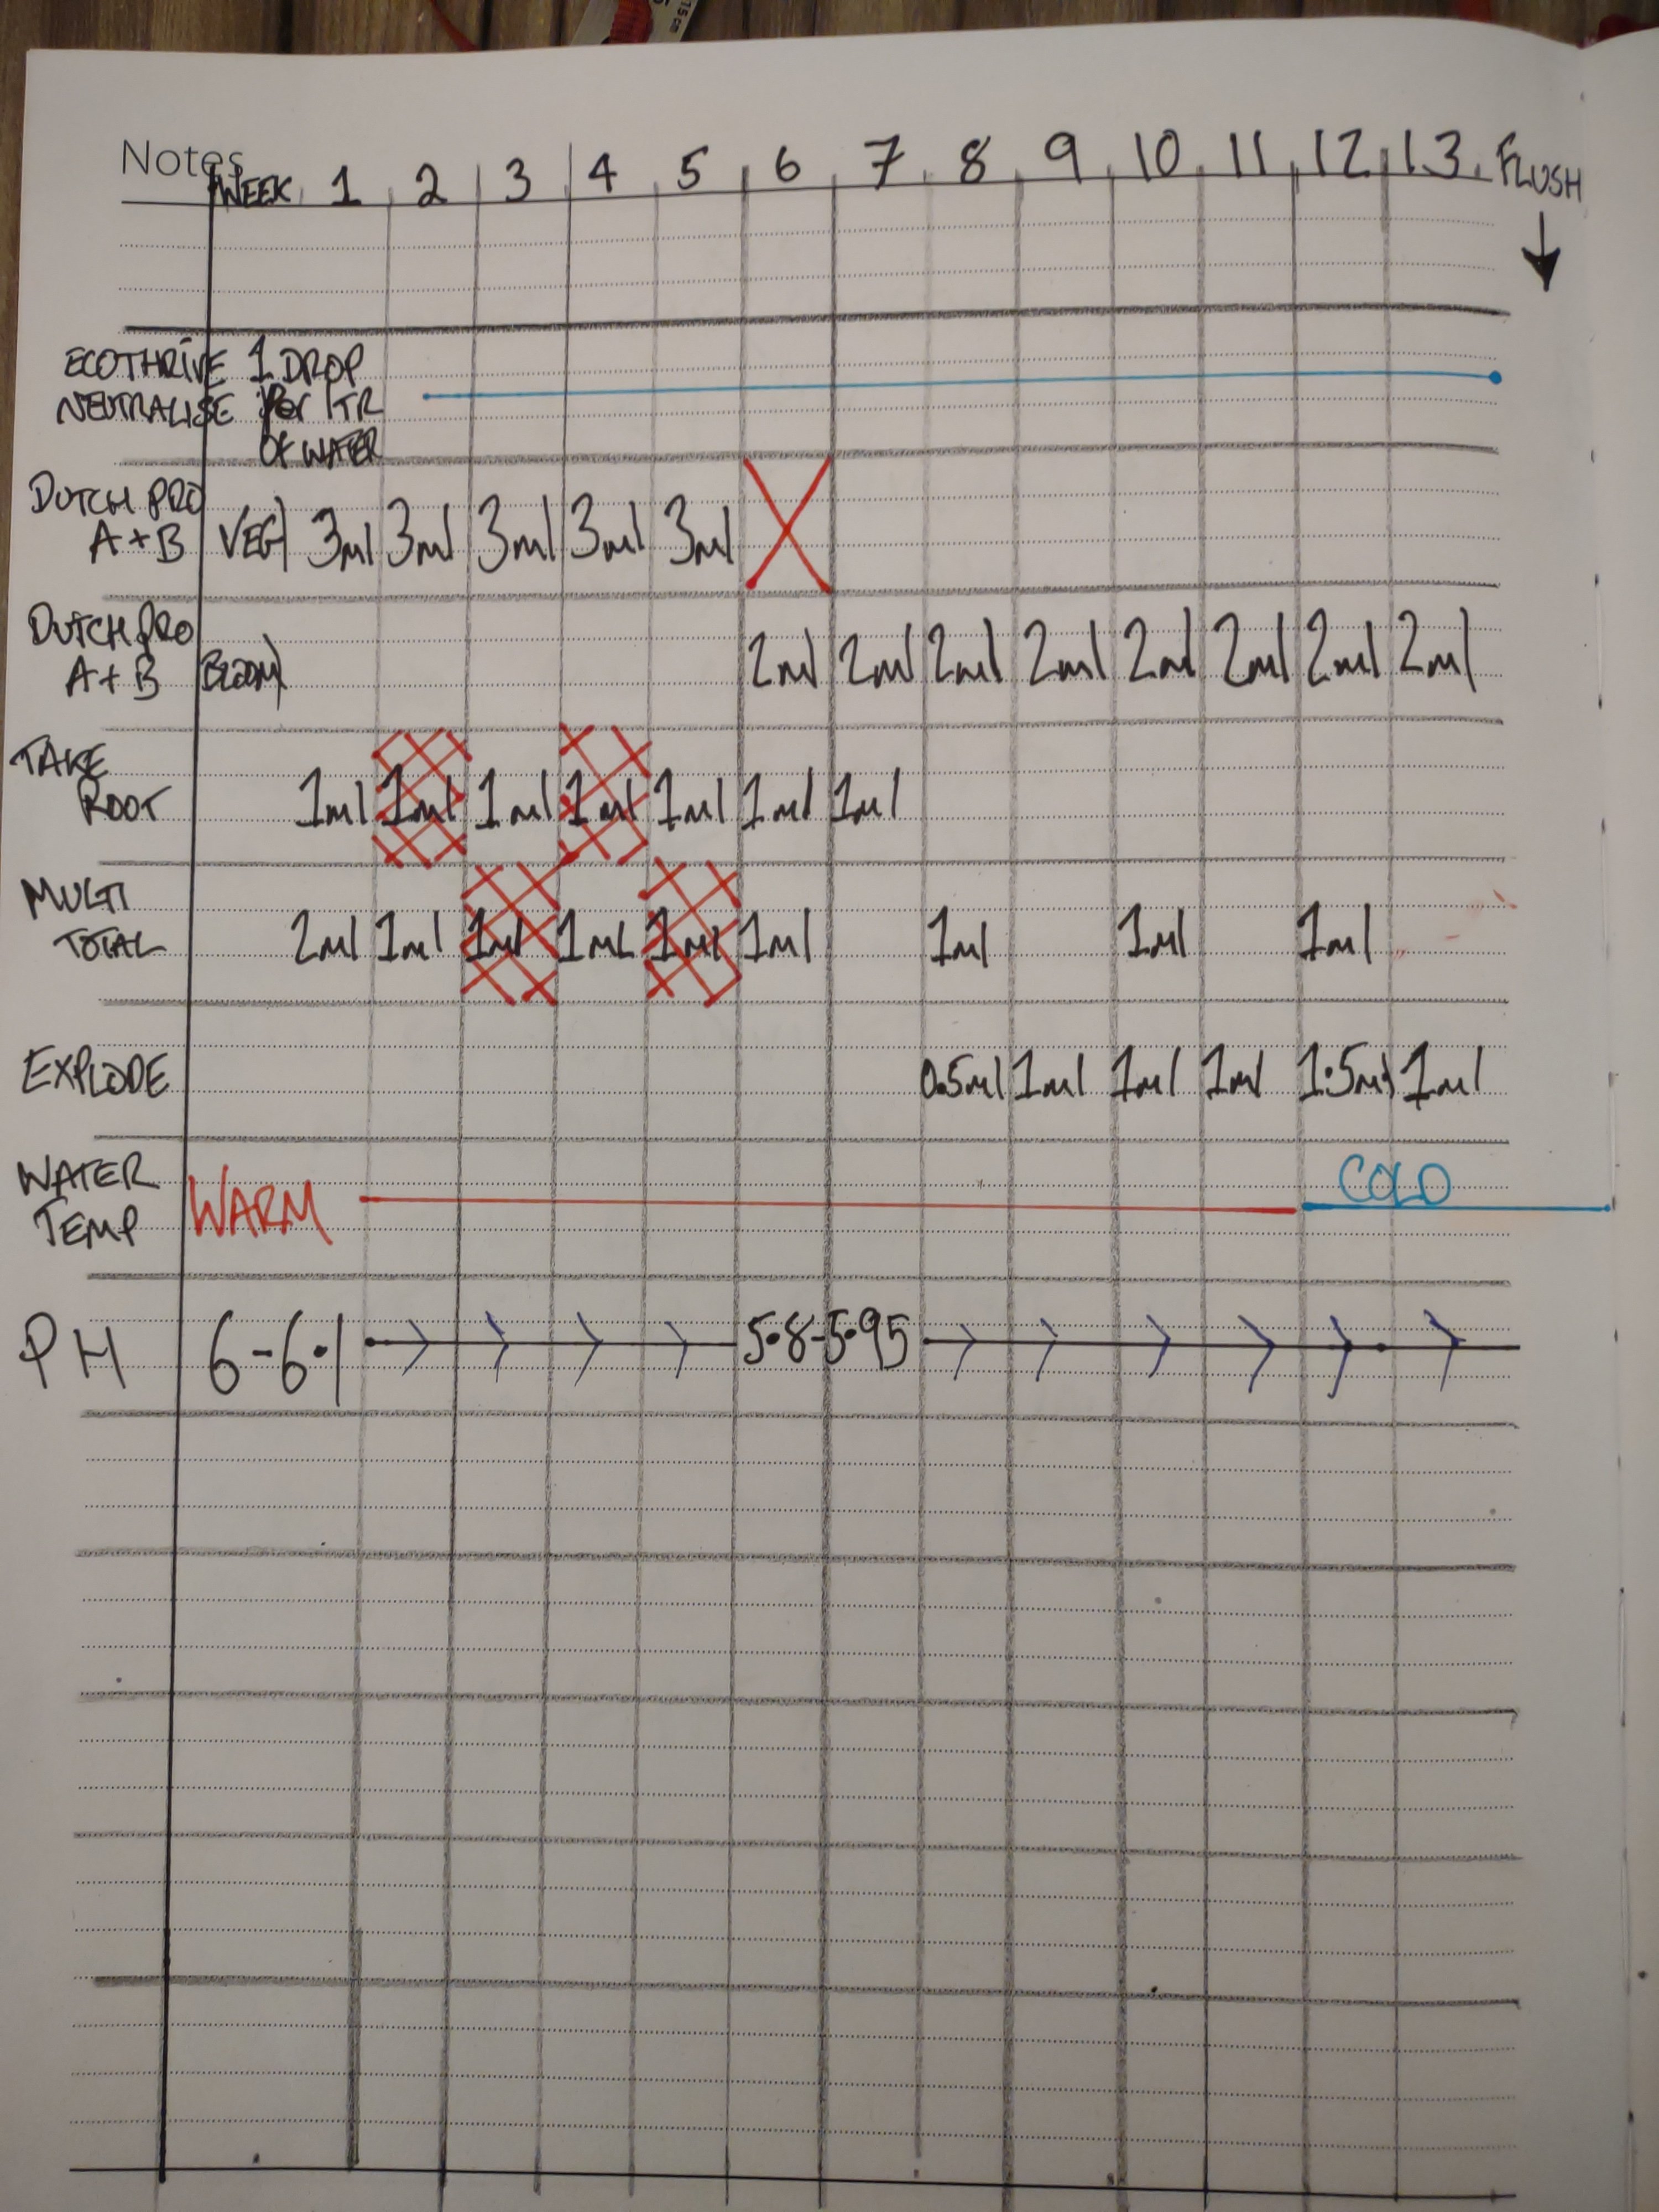 15cm
Notes
WEEK 1 2 3 4 5 6 7 8 9 10 11 12 13 FLUSH
ECOTHRIVE 1 DROP
NEUTRALISE Per LTR
OF WATER
DUTCH PRO
A+B VEG 3ml 3ml 3ml 3ml 3ml
DUTCH PRO
A+B BLOOM 2ml 2ml 2ml 2ml 2ml 2ml 2ml 2ml
TAKE
ROOT 1ml 1ml 1ml 1ml 1ml 1ml 1ml
MULTI
TOTAL 2ml 1ml 1ml 1ml 1ml 1ml 1ml 1ml 1ml
EXPLODE 0.5ml 1ml 1ml 1ml 1.5ml 1ml
WATER
TEMP WARM COLD
PH 6-6.1 5.8-5.95